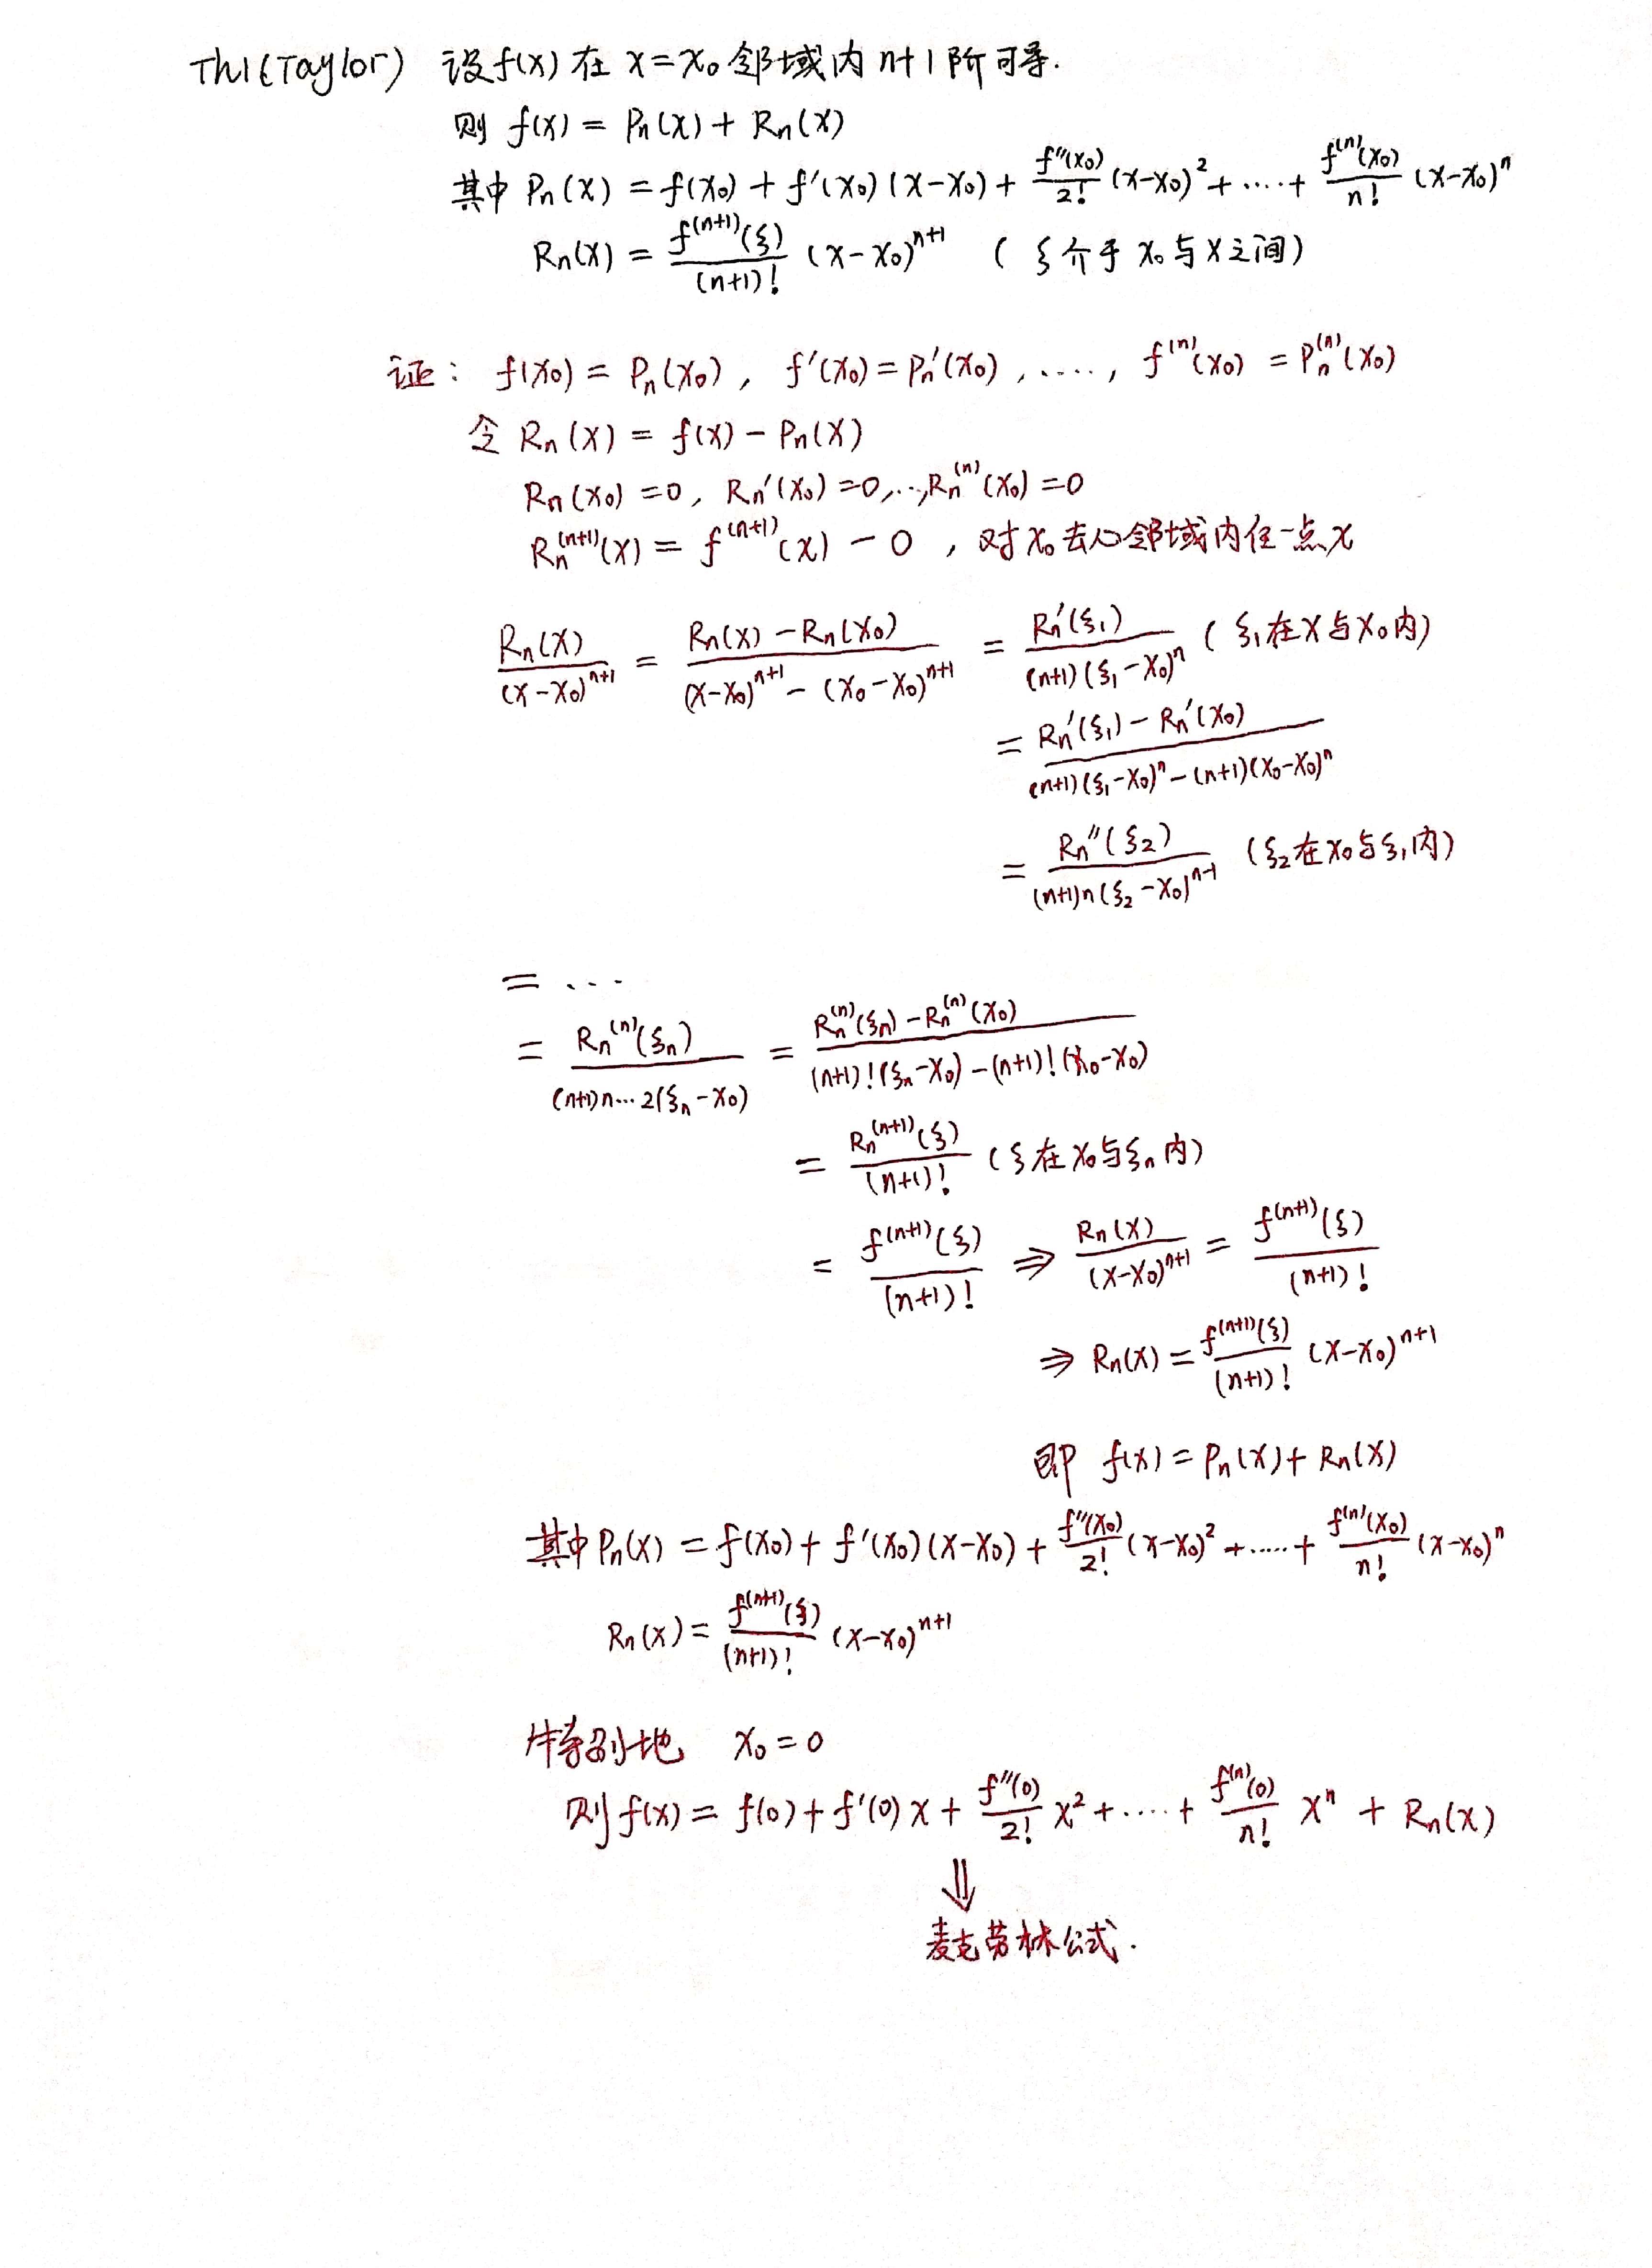 Th1(Taylor) 设f(x)在 x=x₀邻域内 n+1阶可导.
则 f(x) = Pn(x) + Rn(x)
其中 Pn(x) = f(x₀) + f'(x₀)(x-x₀) + \frac{f''(x₀)}{2!}(x-x₀)² + ····+ \frac{f^{(n)}(x₀)}{n!}(x-x₀)^n
Rn(x) = \frac{f^{(n+1)}(ξ)}{(n+1)!}(x-x₀)^{n+1} (ξ介于 x₀与x之间)
证: f(x₀) = Pn(x₀), f'(x₀) = Pn'(x₀), ····, f^{(n)}(x₀) = Pn^{(n)}(x₀)
令 Rn(x) = f(x) - Pn(x)
Rn(x₀) = 0, Rn'(x₀) = 0,···,Rn^{(n)}(x₀) = 0
Rn^{(n+1)}(x) = f^{(n+1)}(x) - 0 , 对x₀去心邻域内任一点x
\frac{Rn(x)}{(x-x₀)^{n+1}} = \frac{Rn(x)-Rn(x₀)}{(x-x₀)^{n+1}-(x₀-x₀)^{n+1}} = \frac{Rn'(ξ₁)}{(n+1)(ξ₁-x₀)^n} (ξ₁在x与x₀内)
= \frac{Rn'(ξ₁)-Rn'(x₀)}{(n+1)(ξ₁-x₀)^n-(n+1)(x₀-x₀)^n}
= \frac{Rn''(ξ₂)}{(n+1)n(ξ₂-x₀)^{n-1}} (ξ₂在x₀与ξ₁内)
= ···
= \frac{Rn^{(n)}(ξn)}{(n+1)n···2(ξn-x₀)} = \frac{Rn^{(n)}(ξn)-Rn^{(n)}(x₀)}{(n+1)!(ξn-x₀)-(n+1)!(x₀-x₀)}
= \frac{Rn^{(n+1)}(ξ)}{(n+1)!} (ξ在x₀与ξn内)
= \frac{f^{(n+1)}(ξ)}{(n+1)!} ⇒ \frac{Rn(x)}{(x-x₀)^{n+1}} = \frac{f^{(n+1)}(ξ)}{(n+1)!}
⇒ Rn(x) = \frac{f^{(n+1)}(ξ)}{(n+1)!}(x-x₀)^{n+1}
即 f(x) = Pn(x) + Rn(x)
其中Pn(x) = f(x₀) + f'(x₀)(x-x₀) + \frac{f''(x₀)}{2!}(x-x₀)² + ·····+ \frac{f^{(n)}(x₀)}{n!}(x-x₀)^n
Rn(x) = \frac{f^{(n+1)}(ξ)}{(n+1)!}(x-x₀)^{n+1}
特别地 x₀ = 0
则f(x) = f(0) + f'(0)x + \frac{f''(0)}{2!}x² + ····+ \frac{f^{(n)}(0)}{n!}x^n + Rn(x)
⇓
麦克劳林公式.